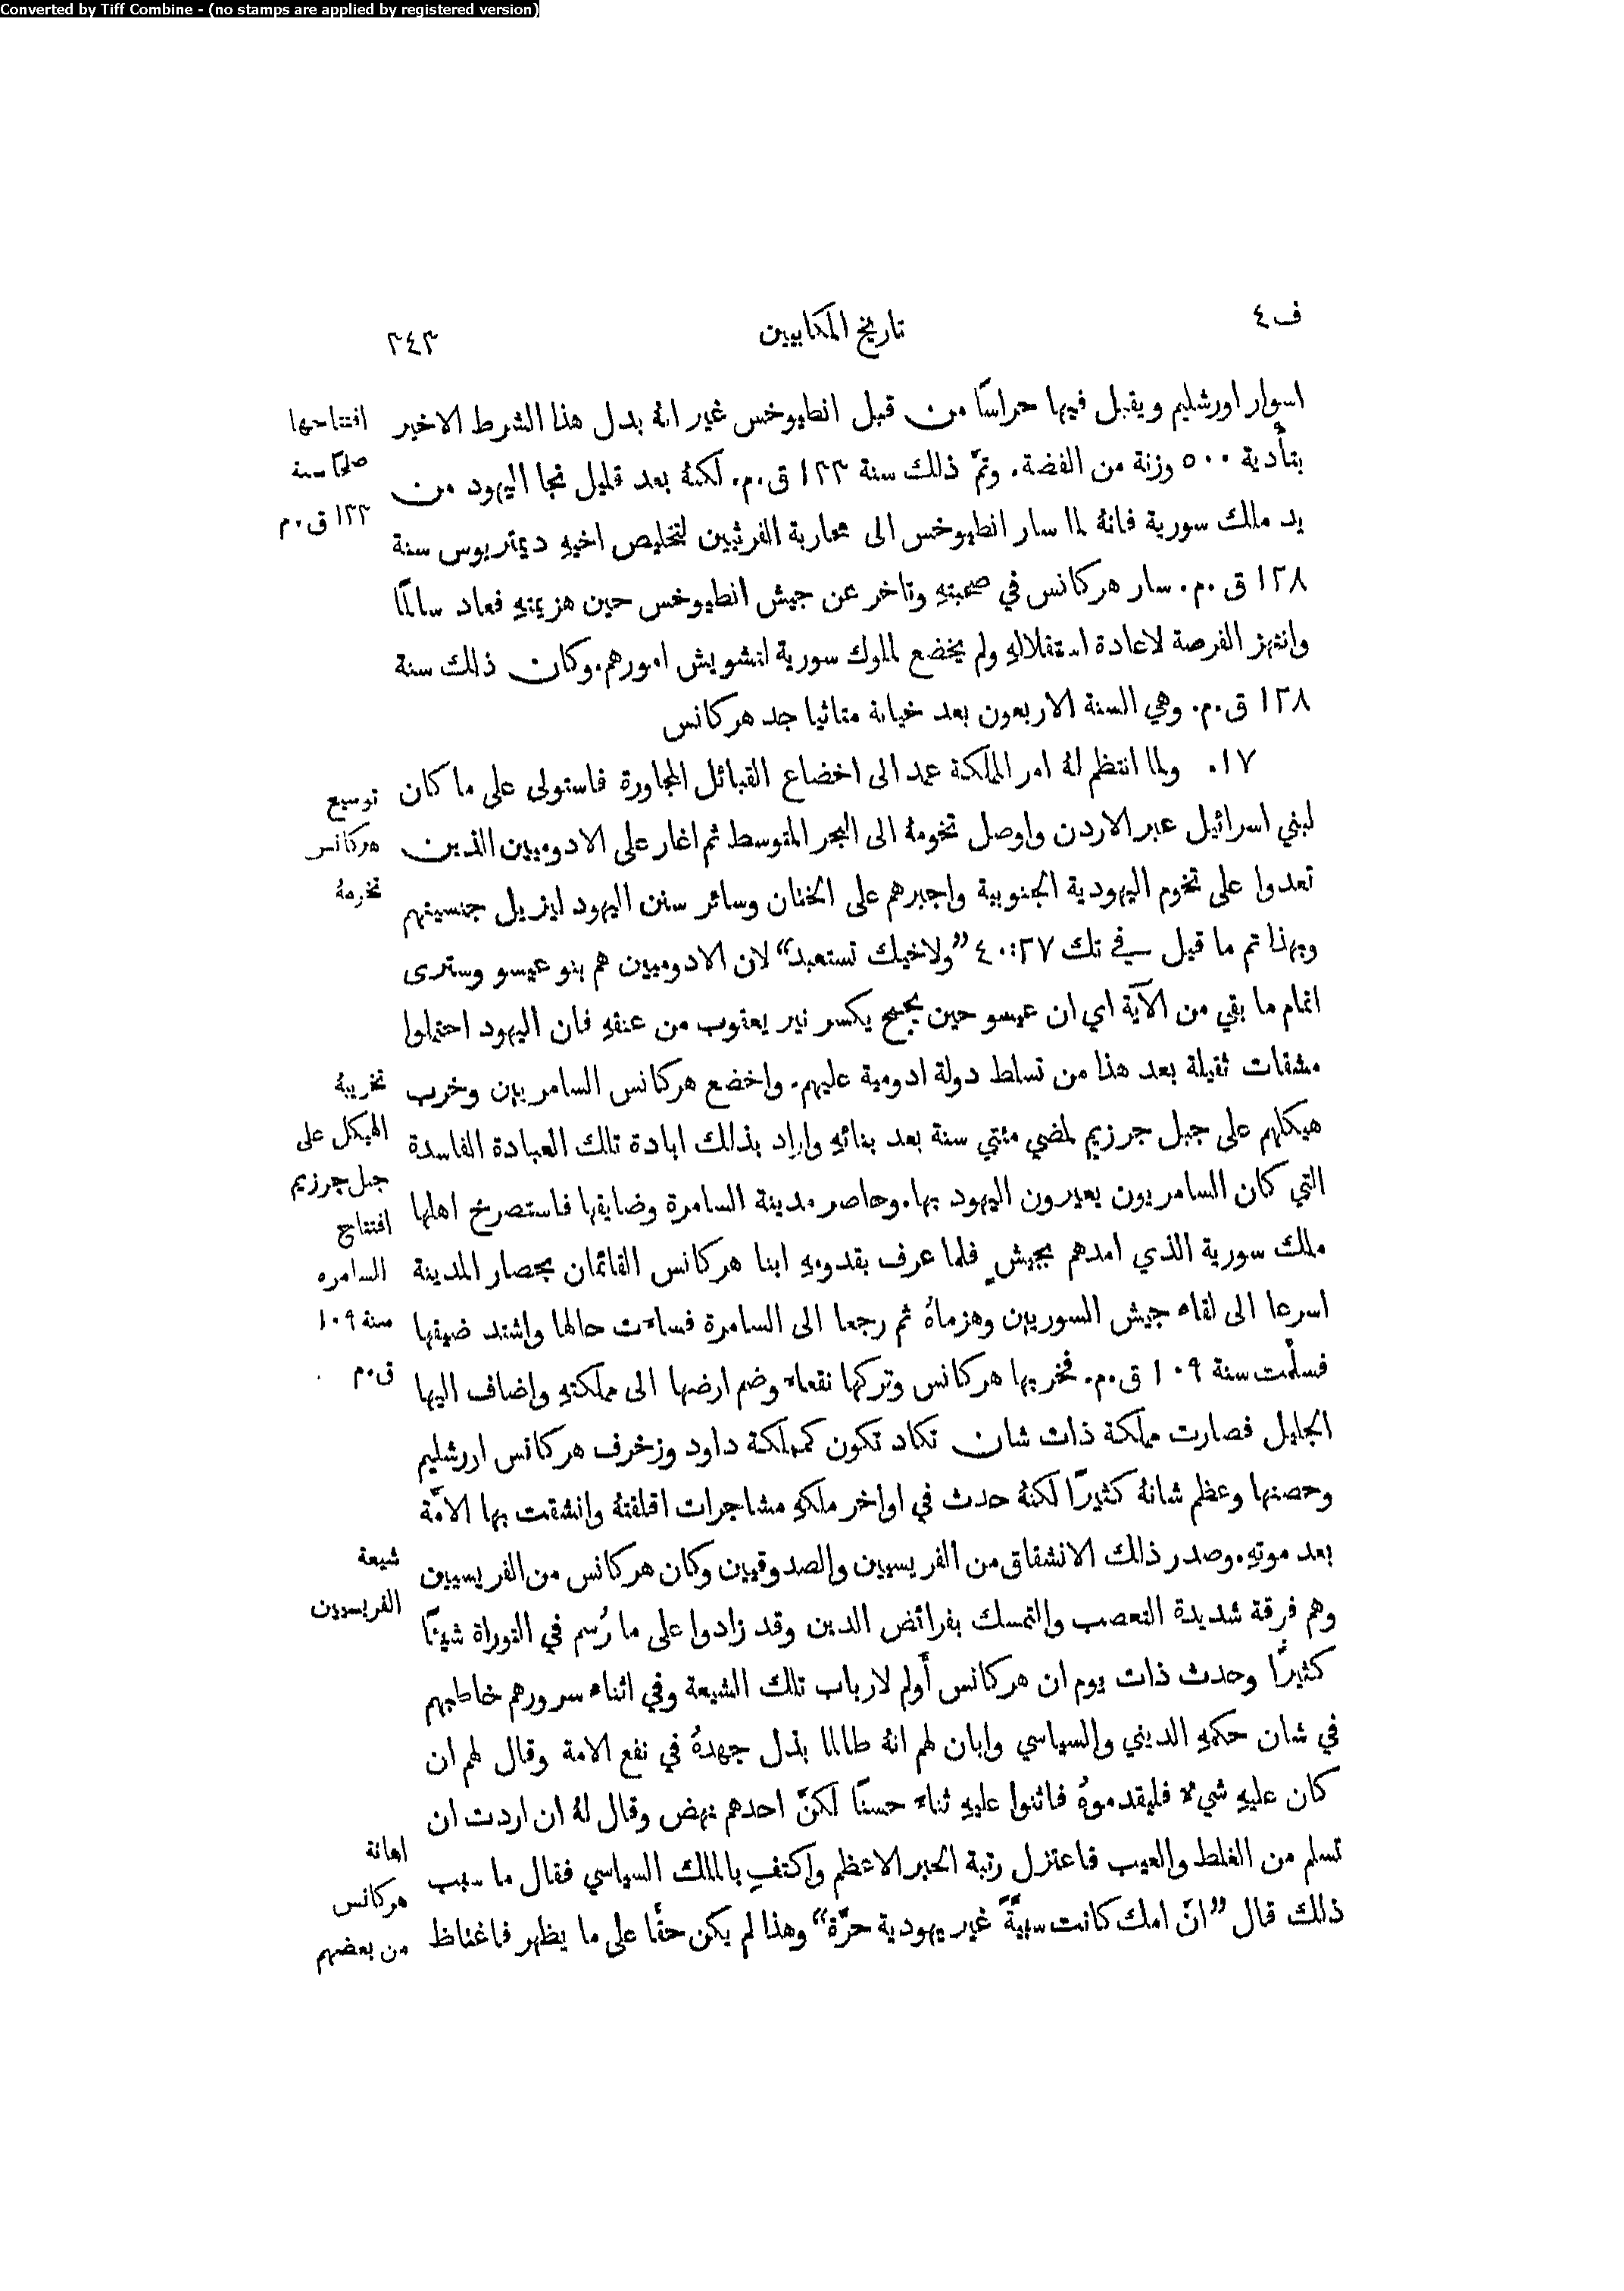 Converted by Tiff Combine - (no stamps are applied by registered version)
ف ٤ تاريخ المكابيين ٢٤٣
اسوار اورشليم ويقبل فيها حراسًا من قبل انطيوخس غير انهُ بدل هذا الشرط الاخير
بتأدية ٥٠٠ وزنة من الفضة. وتمَّ ذلك سنة ١٣٣ ق.م. لكنهُ بعد قليل نجا اليهود من
يد ملك سورية فانهُ لما سار انطيوخس الى محاربة الفرثيين لتخليص اخيهِ ديمتريوس سنة
١٢٨ ق.م. سار هركانس في صحبتهِ وتاخر عن جيش انطيوخس حين هزيمتهِ فعاد سالمًا
وانتهز الفرصة لاعادة استقلالهِ ولم يخضع لملوك سورية لتشويش امورهم. وكان ذلك سنة
١٢٨ ق.م. وهي السنة الاربعون بعد خيانة متاثيا جد هركانس
افتتاحها
صلحًا سنة
١٣٣ ق.م
١٧. ولما انتظم لهُ امر المملكة عمد الى اخضاع القبائل المجاورة فاستولى على ما كان
لبني اسرائيل عبر الاردن واوصل تخومهُ الى البحر المتوسط ثم اغار على الادوميين الذين
تعدوا على تخوم اليهودية الجنوبية واجبرهم على الختان وسائر سنن اليهود ليزيل جنسيتهم
وبهذا تم ما قيل في تك ٢٧:٤٠ ”ولاخيك تستعبد“ لان الادوميين هم بنو عيسو وسترى
اتمام ما بقي من الآية اي ان عيسو حين يجمح يكسر نير يعقوب من عنقهِ فان اليهود احتملوا
مشقات ثقيلة بعد هذا من تسلط دولة ادومية عليهم. واخضع هركانس السامريين وخرب
هيكلهم على جبل جرزيم لمضي مئتي سنة بعد بنائهِ واراد بذلك ابادة تلك العبادة الفاسدة
التي كان السامريون يعيرون اليهود بها. وحاصر مدينة السامرة وضايقها فاستصرخ اهلها
ملك سورية الذي امدهم بجيشٍ فلما عرف بقدومهِ ابنا هركانس القائمان بحصار المدينة
اسرعا الى لقاء جيش السوريين وهزماهُ ثم رجعا الى السامرة فساءت حالها واشتد ضيقها
فسلَّمت سنة ١٠٩ ق.م. فخربها هركانس وتركها نقعاء وضم ارضها الى مملكتهِ واضاف اليها
الجليل فصارت مملكة ذات شان تكاد تكون كمملكة داود وزخرف هركانس اررشليم
وحصنها وعظم شانهُ كثيرًا لكنهُ حدث في اواخر ملكهِ مشاجرات اقلقتهُ وانشقت بها الامَّة
بعد موتهِ. وصدر ذلك الانشقاق من الفريسيين والصدوقيين وكان هركانس من الفريسيين
وهم فرقة شديدة التعصب والتمسك بفرائض الدين وقد زادوا على ما رُسم في التوراة شيئًا
كثيرًا وحدث ذات يوم ان هركانس أَولم لارباب تلك الشيعة وفي اثناء سرورهم خاطبهم
في شان حكمهِ الديني والسياسي وابان لهم انهُ طالما بذل جهدهُ في نفع الامة وقال لهم ان
كان عليهِ شيءٌ فليقدموهُ فاثنوا عليهِ ثناء حسنًا لكنَّ احدهم نهض وقال لهُ ان اردت ان
تسلم من الغلط والعيب فاعتزل رتبة الحبر الاعظم واكتفِ بالملك السياسي فقال ما سبب
ذلك قال ”انَّ امك كانت سبيَّةً غير يهودية حرَّة“ وهذا لم يكن حقًا على ما يظهر فاغتاظ
توسيع
هركانس
تخومهُ
تخريبهُ
الهيكل على
جبل جرزيم
افتتاح
السامره
سنة ١٠٩
ق.م
شيعة
الفريسيين
اهانة
هركانس
من بعضهم